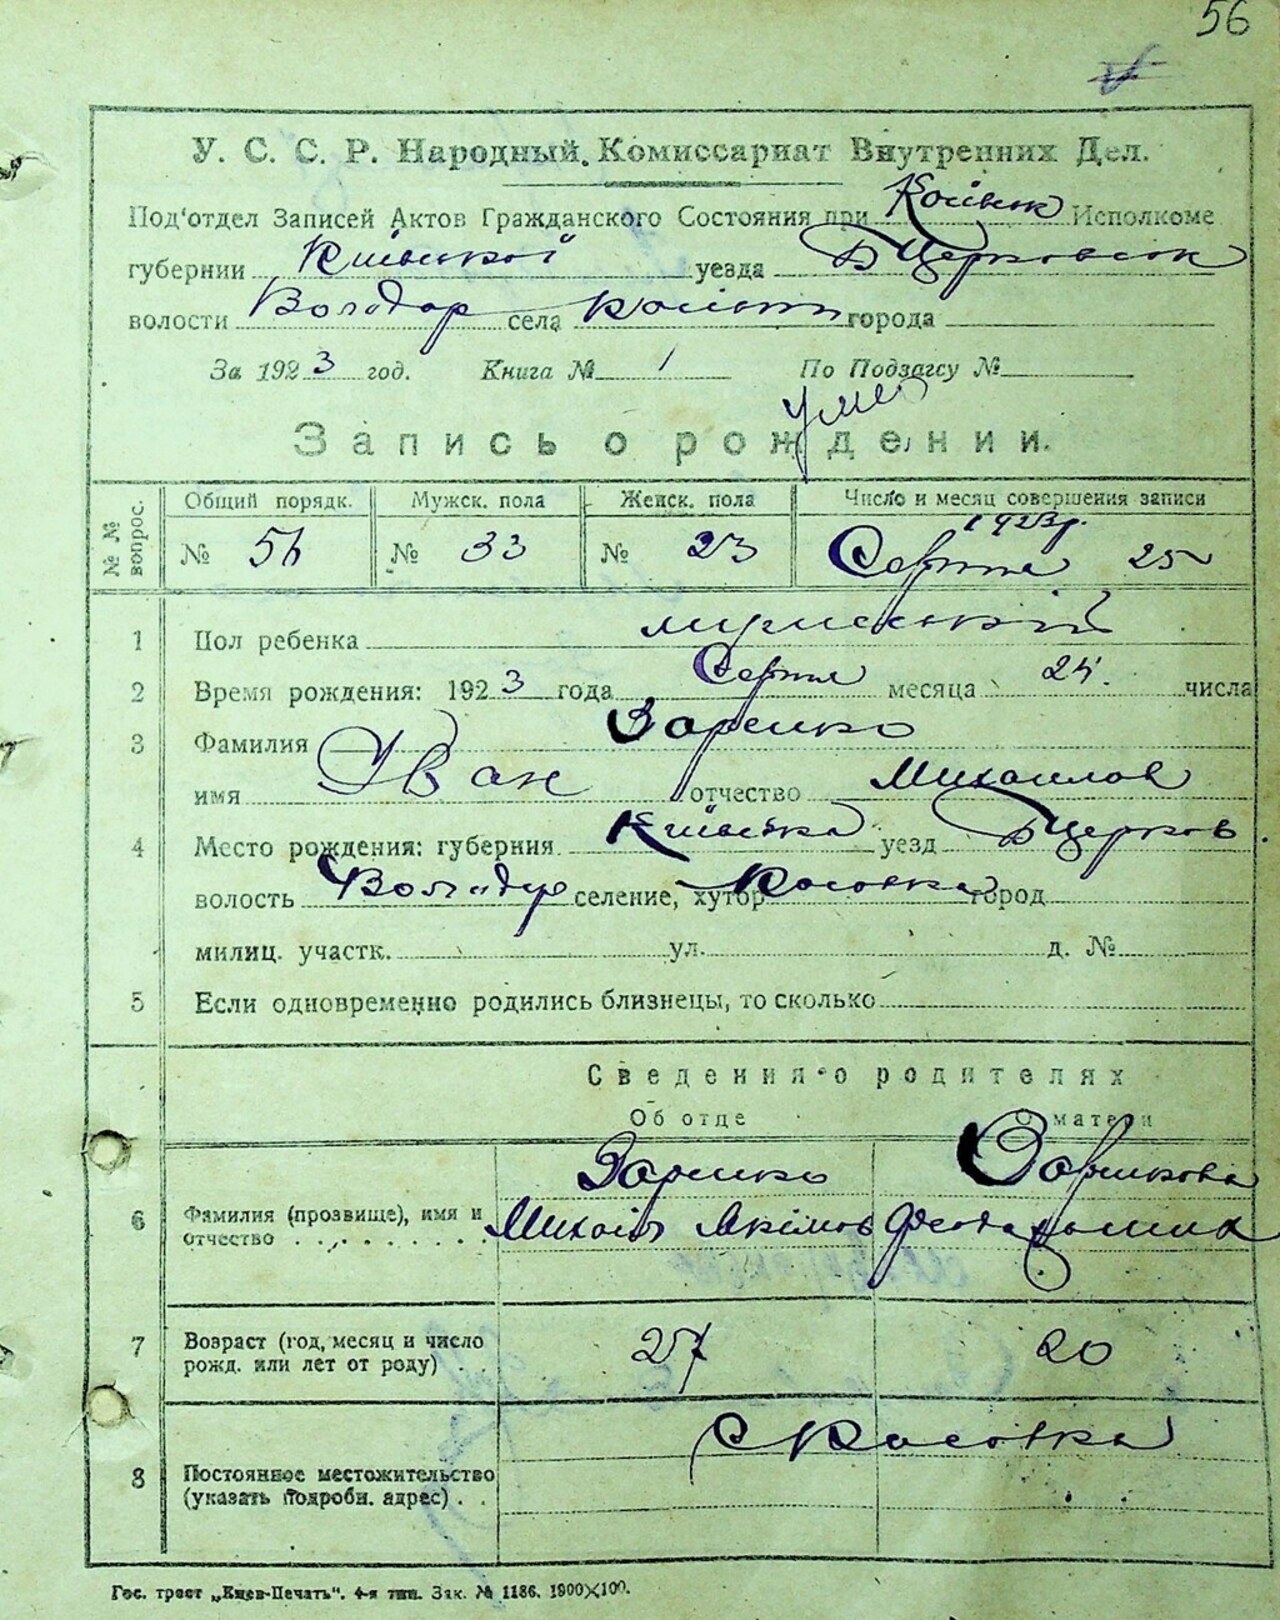 56
У. С. С. Р. Народный Комиссариат Внутренних Дел.
Под'отдел Записей Актов Гражданского Состояния при Исполкоме
губернии Київської уезда Б Церковськ
волости Володар села города
За 1923 год. Книга № 1 По Подзагсу №
Умер
Запись о рождении.
№ № вопрос. Общий порядк. Мужск. пола Женск. пола Число и месяц совершения записи
№ 56 № 33 № 23 1923р. Серпня 25
1 Пол ребенка мужеський
2 Время рождения: 1923 года Серпня месяца 24. числа
3 Фамилия Заренко
имя Іван отчество Михаилов
4 Место рождения: губерния Київська уезд Б Церков.
волость Володар селение, хутор Косовка город
милиц. участк. ул. д. №
5 Если одновременно родились близнецы, то сколько
Сведения о родителях
Об отце О матери
Заренко
6 Фамилия (прозвище), имя и отчество Михаіл Якімов
7 Возраст (год, месяц и число рожд. или лет от роду) 27 20
С Косовка
8 Постоянное местожительство (указать подробн. адрес)
Гос. трест „Киев-Печать". 4-я тип. Зак. № 1186. 1900×100.